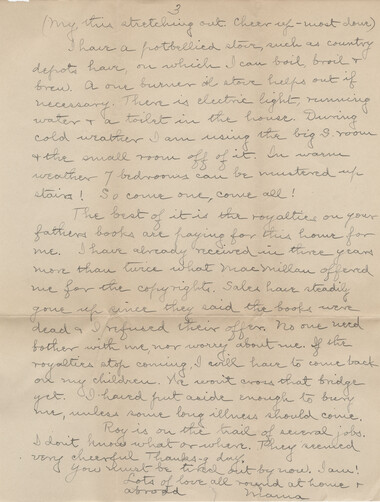 3
(My, this stretching out. Cheer up - most done)
I have a potbellied stove, such as country
depots have, on which I can boil, broil &
brew. A one burner oil stove helps out if
necessary. There is electric light, running
water & a toilet in the house. During
cold weather I am using the big S. room
& the small room off of it. In warm
weather 7 bedrooms can be mustered up
stairs! So come one, come all!
The best of it is the royalties on your
fathers books are paying for this home for
me. I have already received in three years
more than twice what MacMillan offered
me for the copyrights. Sales have steadily
gone up since they said the books were
dead & I refused their offer. No one need
bother with me, nor worry about me. If the
royalties stop coming, I will have to come back
on my children. We won't cross that bridge
yet. I have put aside enough to bury
me, unless some long illness should come.
Roy is on the trail of several jobs.
I don't know what or where. They seemed
very cheerful Thanks-g day.
You must be tired out by now. I am!
Lots of love all round at home &
abroad Mama